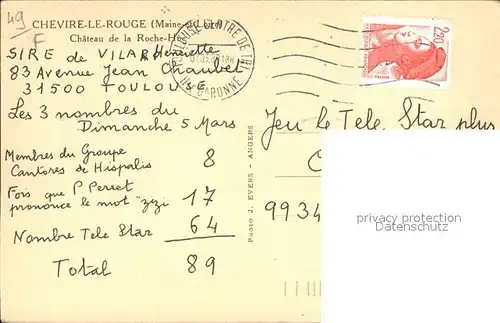 49
F
CHEVIRE-LE-ROUGE (Maine-et-Loire)
Château de la Roche-Hue
SIRE de VILAR Henriette
83 Avenue Jean Chaubet
31500 TOULOUSE
Les 3 nombres du
Dimanche 5 Mars
Membres du Groupe
Cantores de Hispalis 8
Fois que P Perret
prononce le mot "zizi 17
Nombre Tele Star 64
Total 89
PHOTO J. EVERS - ANGERS
TOULOUSE CENTRE DE TRI
GARONNE
2,20
Jeu le Tele Star plus
C
9934
privacy protection
Datenschutz